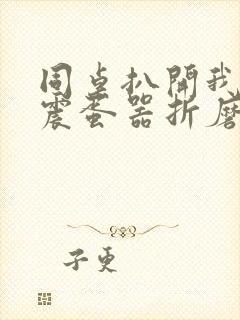 同桌扒開我
震蛋器折磨
子更